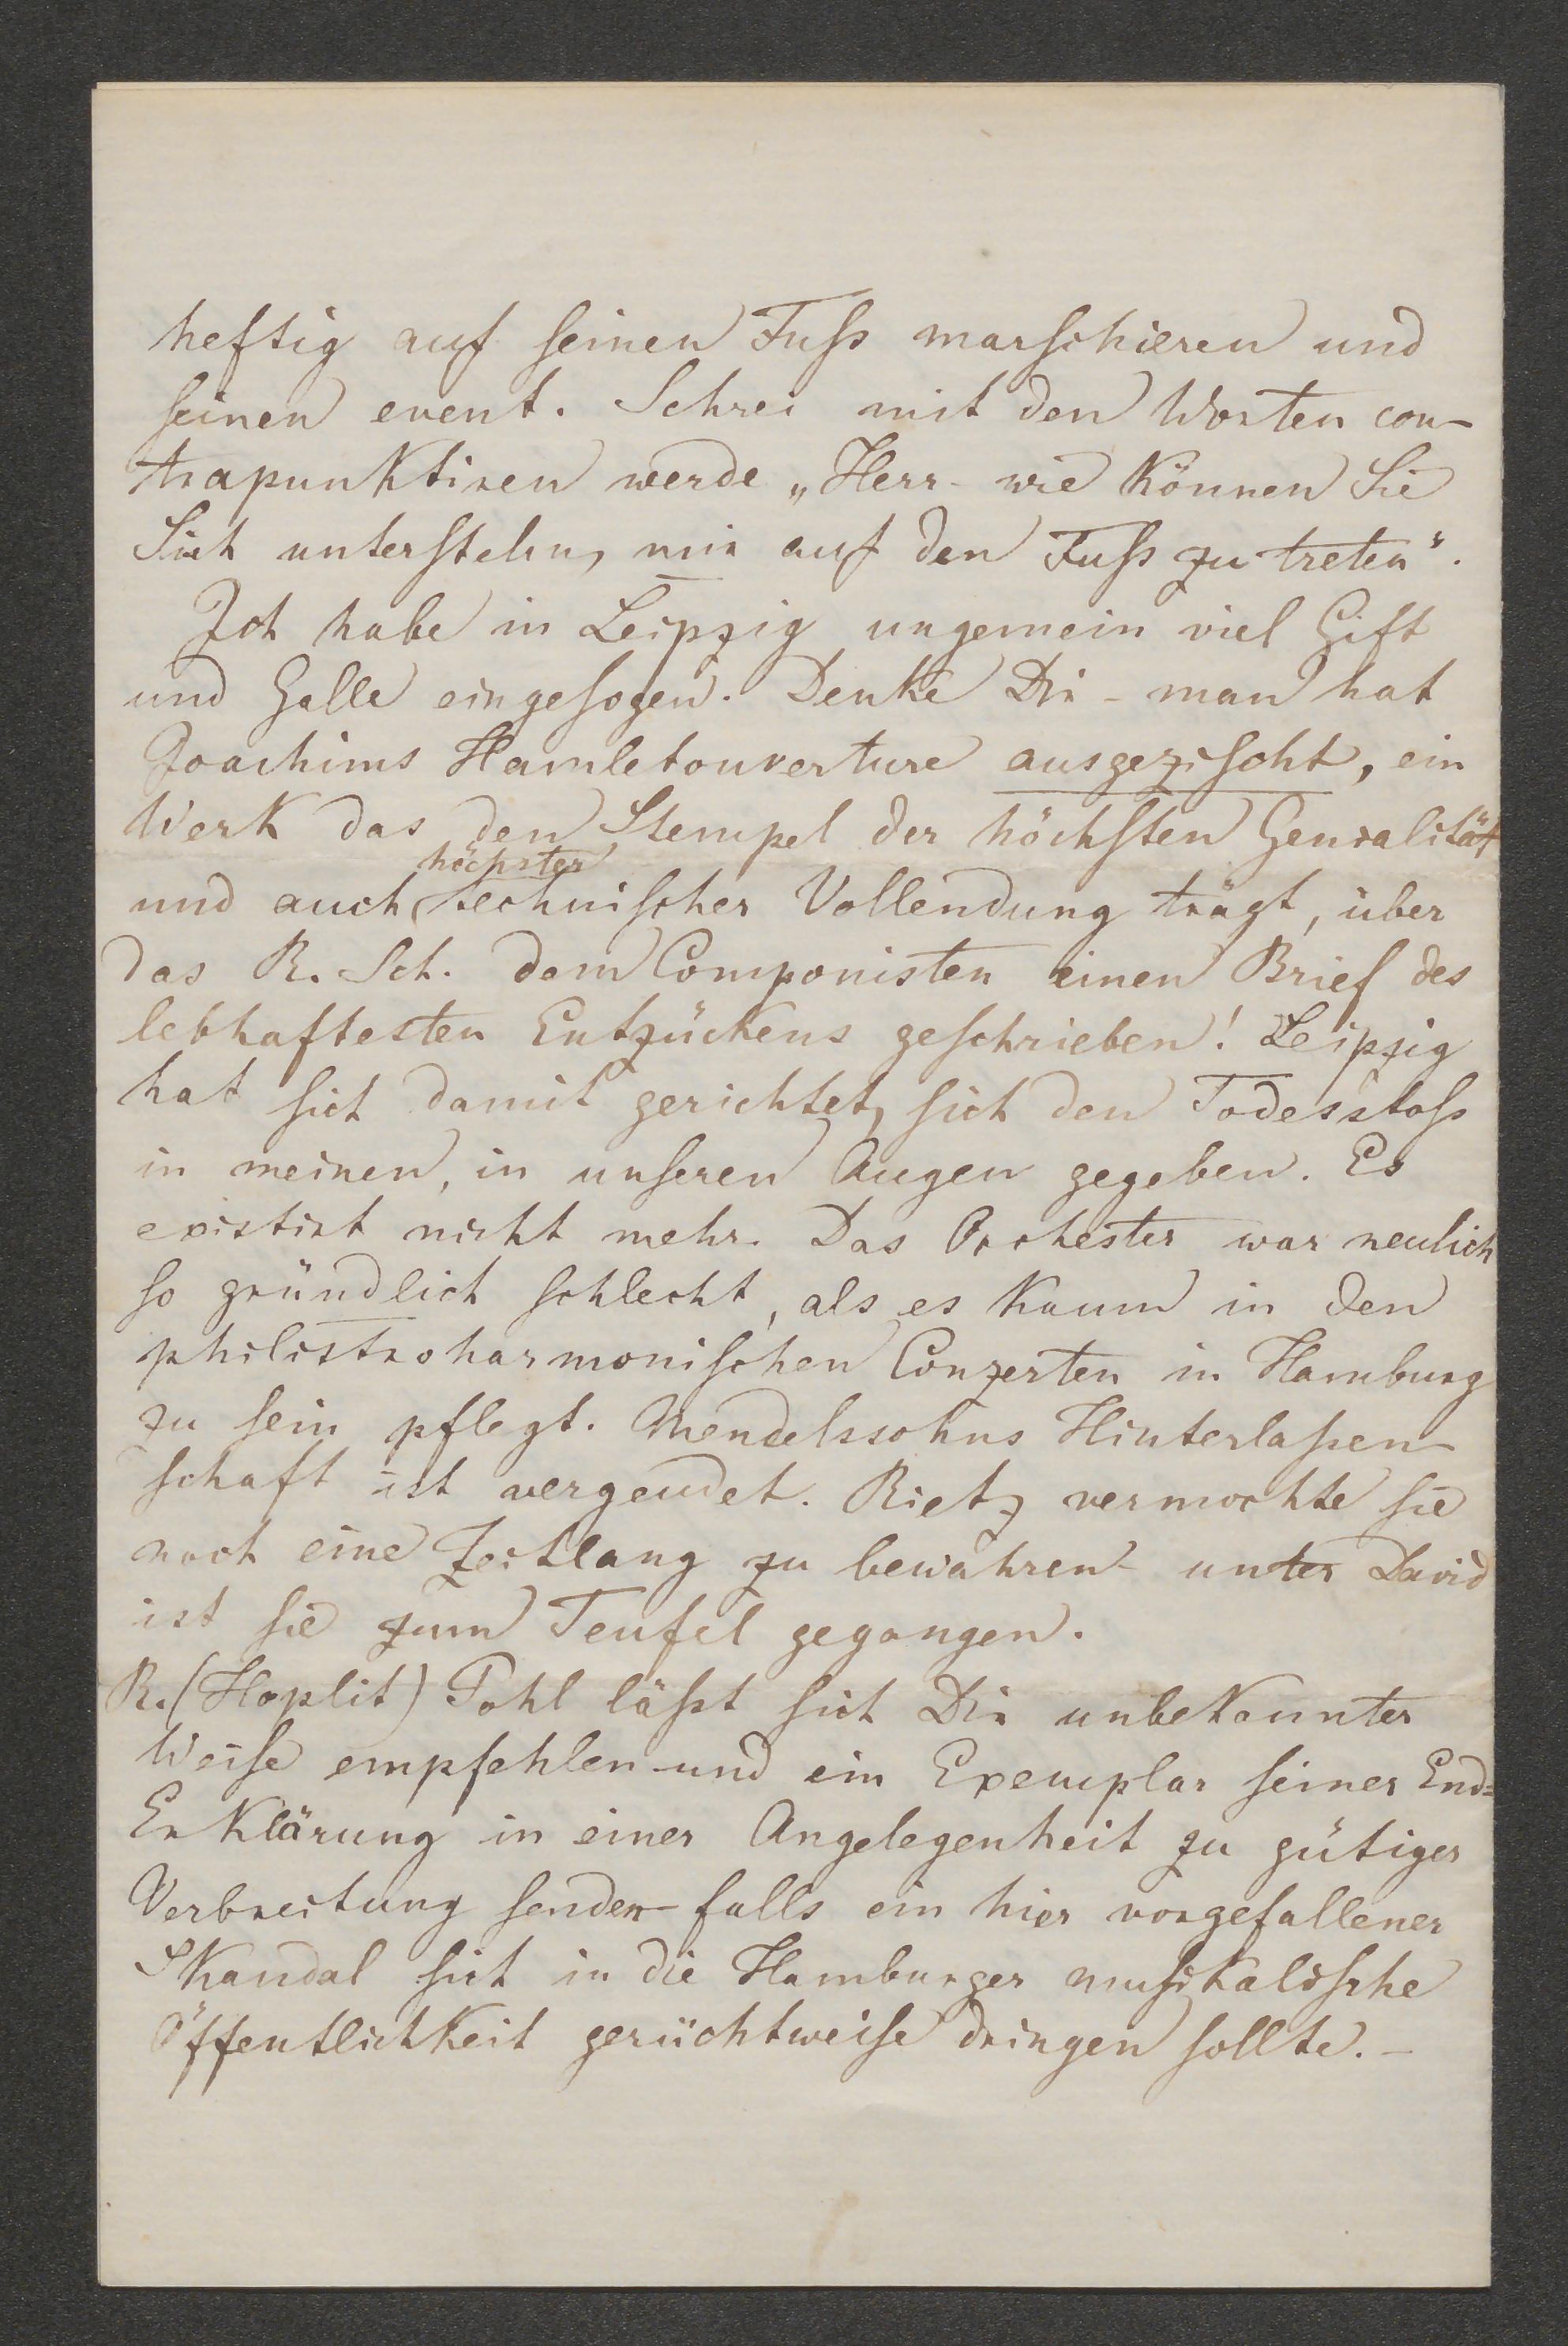 heftig auf seinen Fuss marschieren und
seinen event. Schrei mit den Worten con-
trapunktiren werde „Herr - wie können Sie
Sich unterstehn, mir auf den Fuss zu treten".
Ich habe in Leipzig ungemein viel Gift
und Galle eingesogen. Denke Dir - man hat
Joachims Hamletouverture ausgezischt, ein
Werk das den Stempel der höchsten Genialität
und auch höchster technischer Vollendung trägt, über
das R. Sch. dem Componisten einen Brief des
lebhaftesten Entzückens geschrieben! Leipzig
hat sich damit gerichtet, sich den Todesstoss
in meinen, in unseren Augen gegeben. Es
existirt nicht mehr. Das Orchester war neulich
so gründlich schlecht, als es kaum in den
philistroharmonischen Conzerten in Hamburg
zu sein pflegt. Mendelssohns Hinterlassen-
schaft ist vergeudet. Rietz vermochte sie
noch eine Zeitlang zu bewahren - unter David
ist sie zum Teufel gegangen.
R. (Hoplit) Pohl lässt sich Dir unbekannter
Weise empfehlen und ein Exemplar seiner End=
Erklärung in einer Angelegenheit zu gütiger
Verbreitung senden - falls ein hier vorgefallener
Skandal sich in die Hamburger musikalische
Öffentlichkeit gerüchtweise dringen sollte. -